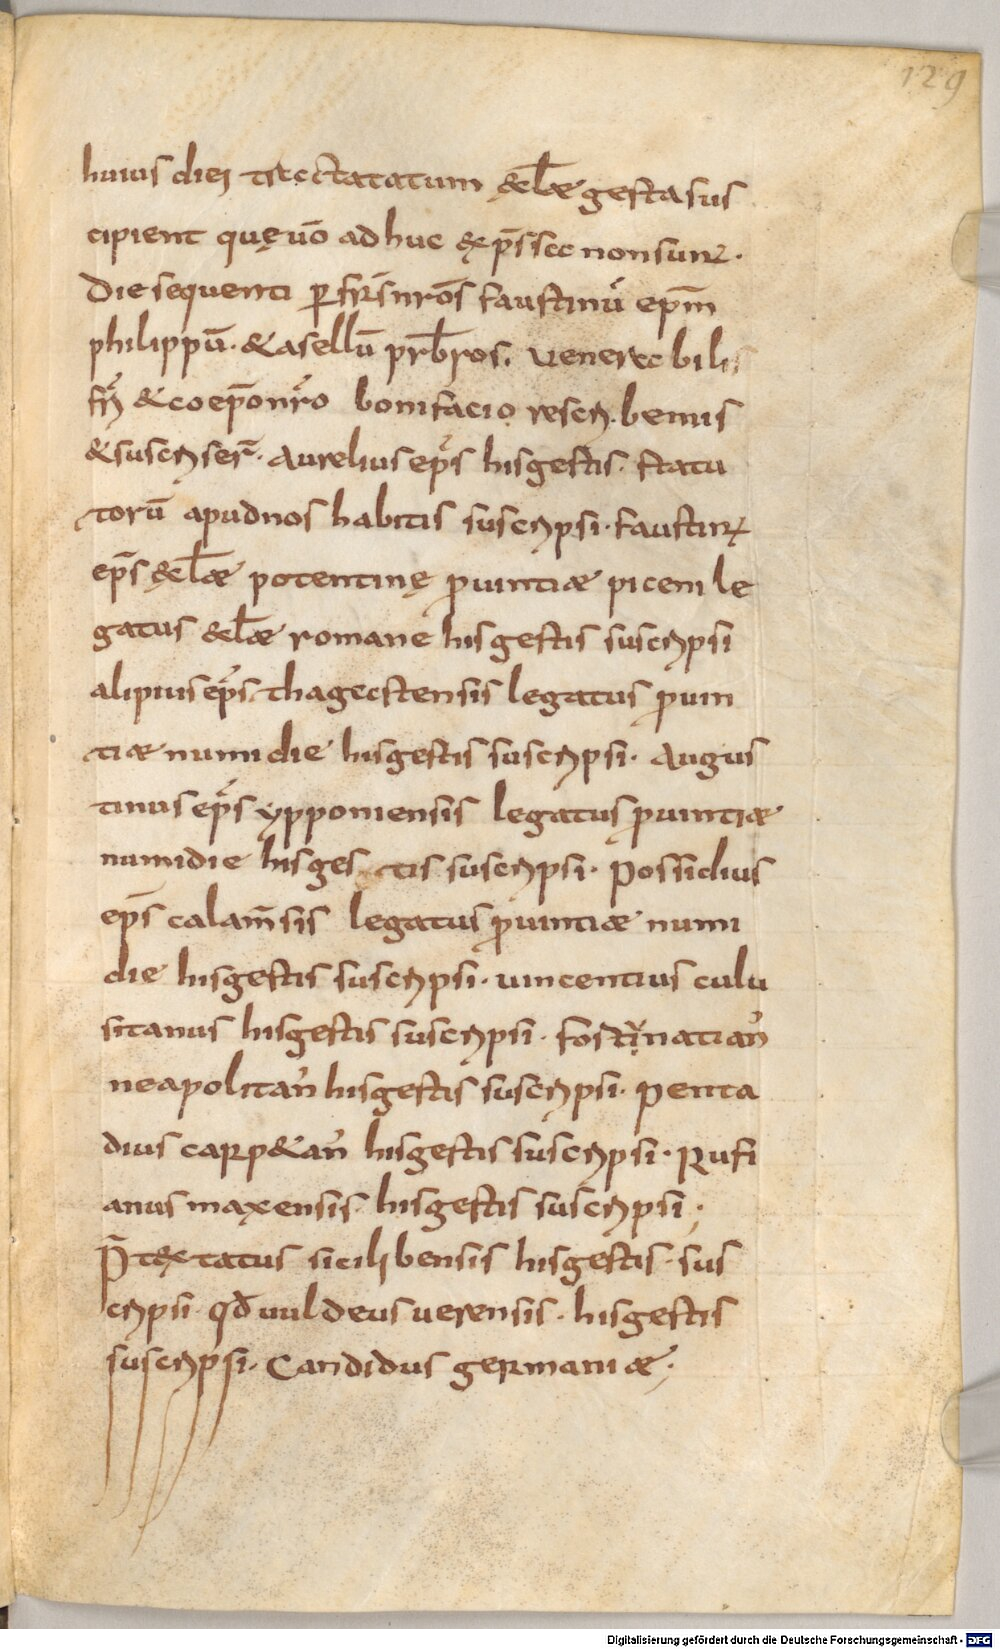 129
huius diei tractatatum & eclae gesta sus
cipient quę uō adhuc exp̄ssa non sunt.
Die sequenti p̱ fr̄s nrōs faustinū ep̄m
philippū. & asellū prb̄ros. uenerabilis
fr̄i & coep̄o nr̄o bonifacio rescribemus
& suscripser̄. Aurelius ep̄s his gestis. statu
torū apud nos habitis suscripsi. faustinus
ep̄s eclae potentinę p̄uintiae piceni le
gatus eclae romane his gestis suscripsi
alipius ep̄s thagastensis legatus p̄uin
tiae numidie his gestis suscripsi. Augus
tinus ep̄s ypponiensis legatus p̄uintiae
numidie his ges tis suscripsi. Possidius
ep̄s calam̄sis legatus p̄uintiae numi
die his gestis suscripsi. uincentius culu
sitanus his gestis suscripsi. fortunatian̄
neapolitan̄ his gestis suscripsi. Penta
dius carp&an̄ his gestis suscripsi. Rufi
anus maxensis his gestis suscripsi;
P̄textatus sicilibensis his gestis. sus
cripsi. qđ uul deus uerensis. his gestis
suscripsi. Candidus germaniae;
Digitalisierung gefördert durch die Deutsche Forschungsgemeinschaft - DFG